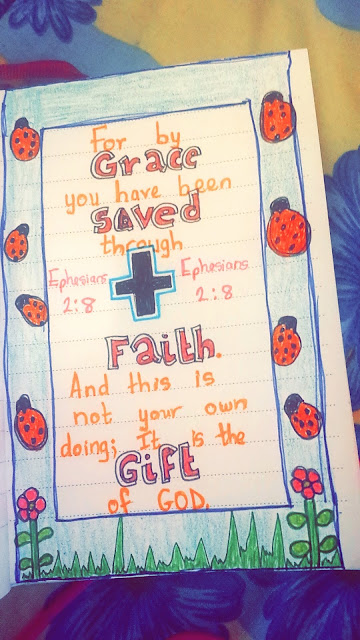 For by
Grace
you have been
saved
through
Ephesians Ephesians
2:8 2:8
Faith.
And this is
not your own
doing; It is the
Gift
of GOD.